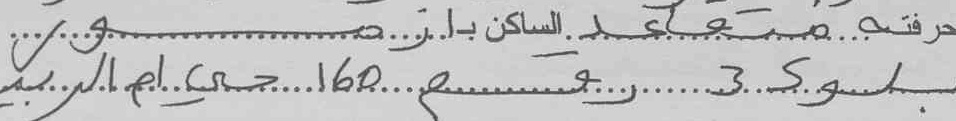 حرفته متقاعد الساكن بـ ارز صور
بلوك 3 رقم 160 حي ام الربيع